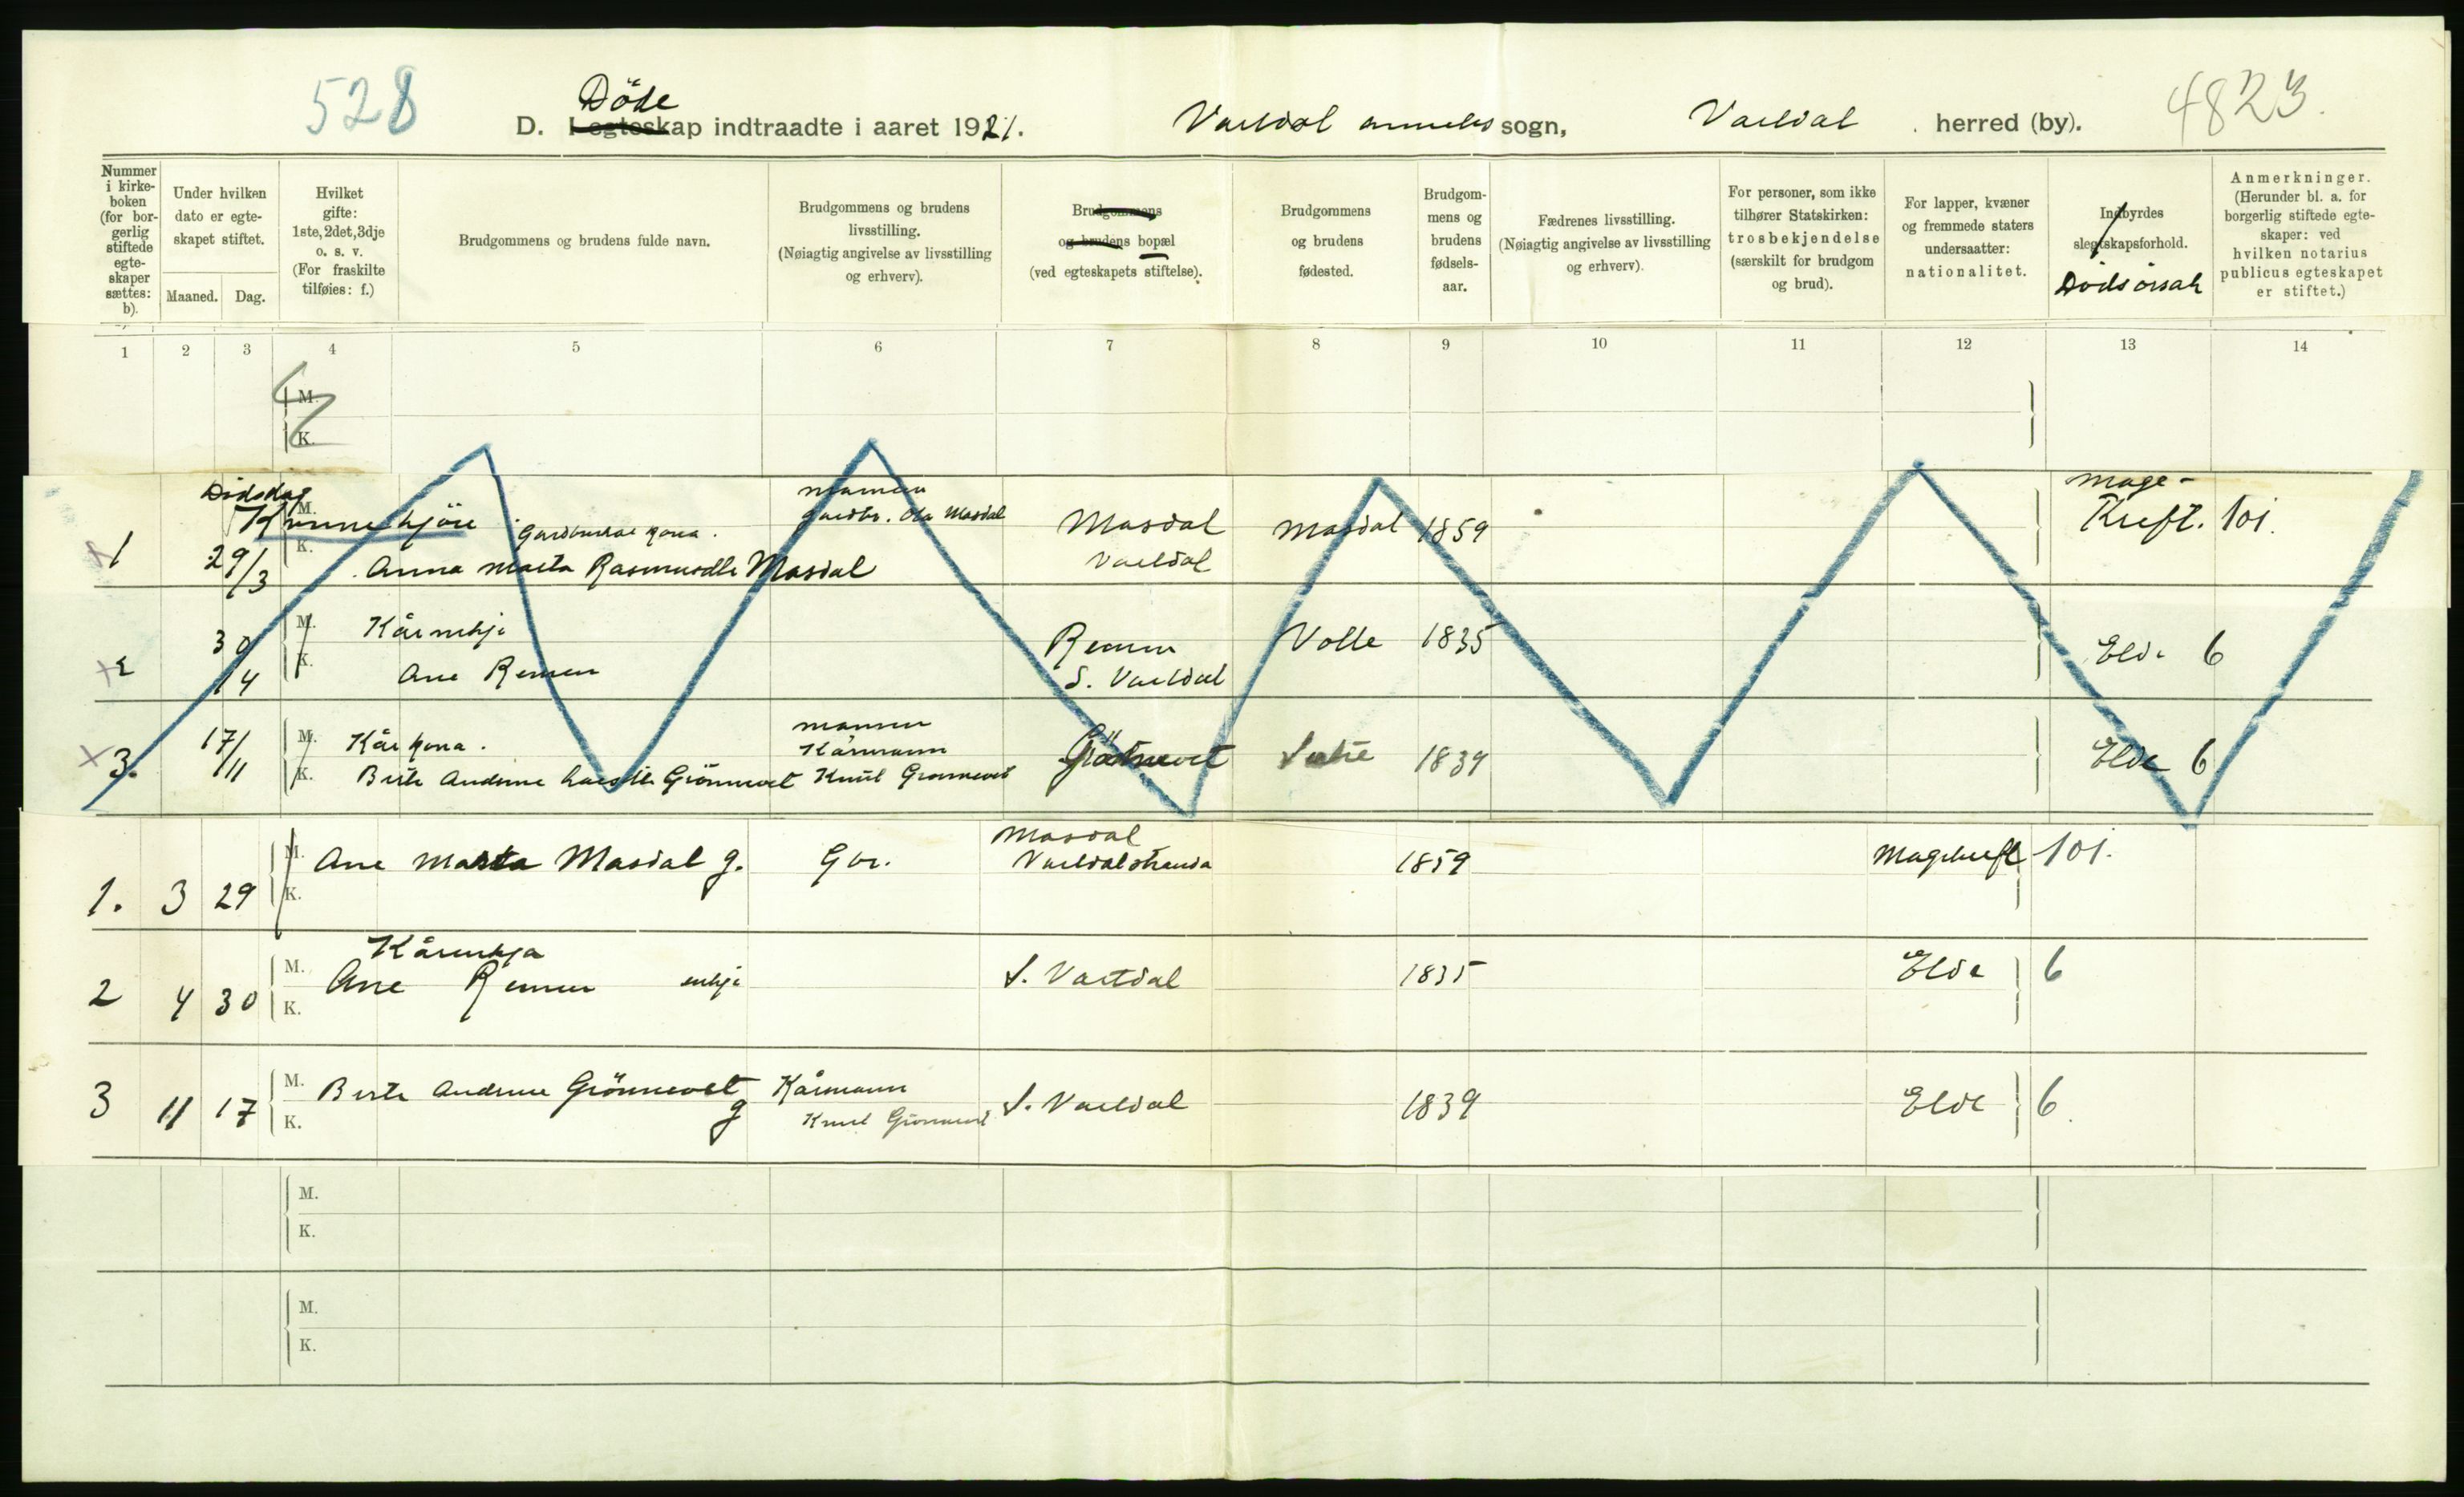 528
Döde
D. I egteskap indtraadte i aaret 1921. Vartdal anneks sogn, Vartdal herred (by). 4823.
Nummer i kirke-boken (for bor-gerlig stiftede egte-skaper sættes: b).
Under hvilken dato er egte-skapet stiftet.
Maaned. Dag.
Hvilket gifte: 1ste, 2det, 3dje o. s. v. (For fraskilte tilføies: f.)
Brudgommens og brudens fulde navn.
Brudgommens og brudens livsstilling. (Nøiagtig angivelse av livsstilling og erhverv).
Brudgommens og brudens bopæl (ved egteskapets stiftelse).
Brudgommens og brudens fødested.
Brudgom-mens og brudens fødsels-aar.
Fædrenes livsstilling. (Nøiagtig angivelse av livsstilling og erhverv).
For personer, som ikke tilhører Statskirken: trosbekjendelse (særskilt for brudgom og brud).
For lapper, kvæner og fremmede staters undersaatter: nationalitet.
Indbyrdes slegtskapsforhold.
Dödsorsak
Anmerkninger. (Herunder bl. a. for borgerlig stiftede egte-skaper: ved hvilken notarius publicus egteskapet er stiftet.)
1 2 3 4 5 6 7 8 9 10 11 12 13 14
M.
K.
Dödsdag M. mannen Mage-
Kvinnekjön Gardbrukar kona. gardbr. Ola Masdal Masdal Masdal 1859 Kreft. 101.
1 29/3 K. Anna Marta Rasmusdtr Masdal Vartdal
M. Kårenkje Remen Volle 1835 Elde 6
2 30/4 K. Ane Remen S. Vartdal
17/11 M. Kårkona. mannen Kårmann Grönnevet Sætre 1839 Elde 6
3. K. Berte Andrine Larsdtr Grönnevet Knut Grønnevet
M. Ane Marta Masdal g. Gbr. Masdal Vartdalstranda 1859 Magekreft 101.
1. 3 29 K.
Kårenkja
M. Ane Remen enkje S. Vartdal 1835 Elde 6
2 4 30 K.
M. Berte Andrine Grönnevet g Kårmann S. Vartdal 1839 Elde 6.
3 11 17 K. Knut Grönnevet
M.
K.
M.
K.